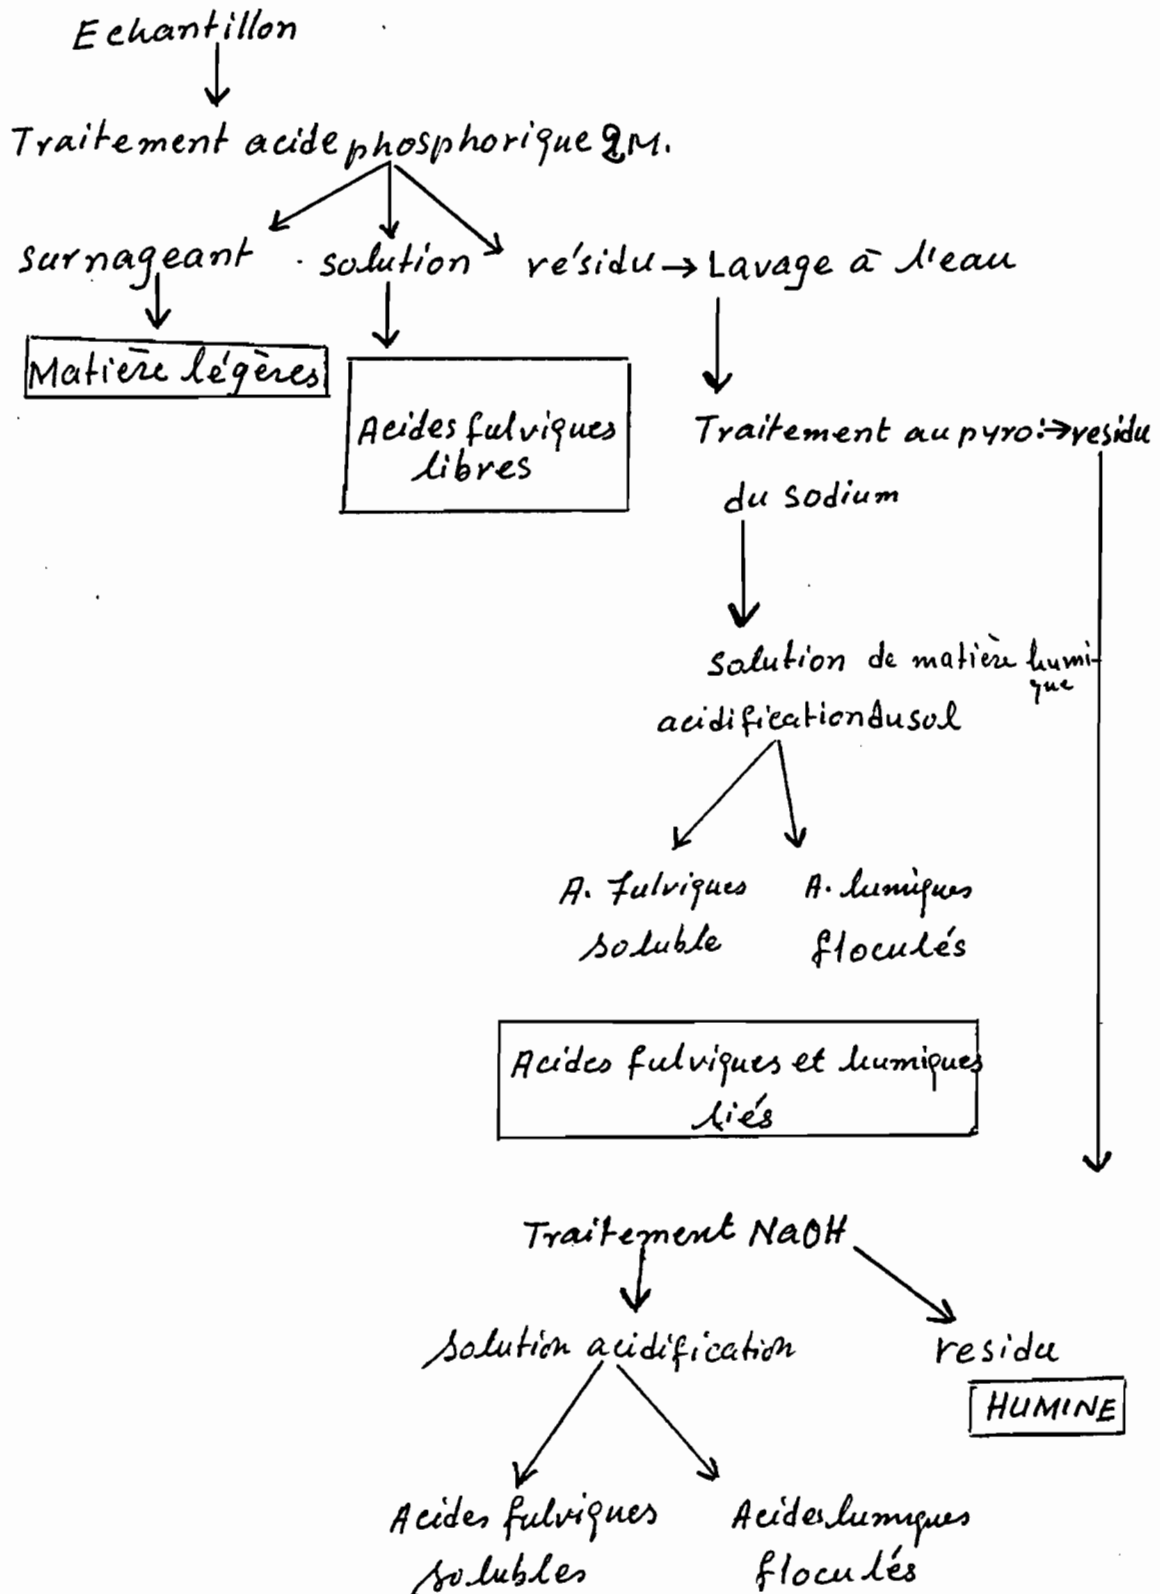 Echantillon
Traitement acide phosphorique 2M.
surnageant solution résidu → Lavage à l'eau
Matière légères
Acides fulviques
libres
Traitement au pyro: → residu
du sodium
Solution de matière humi-
que
acidification du sol
A. Fulviques A. humiques
soluble floculés
Acides fulviques et humiques
liés
Traitement NaOH
Solution acidification residu
HUMINE
Acides fulviques Acides humiques
solubles floculés